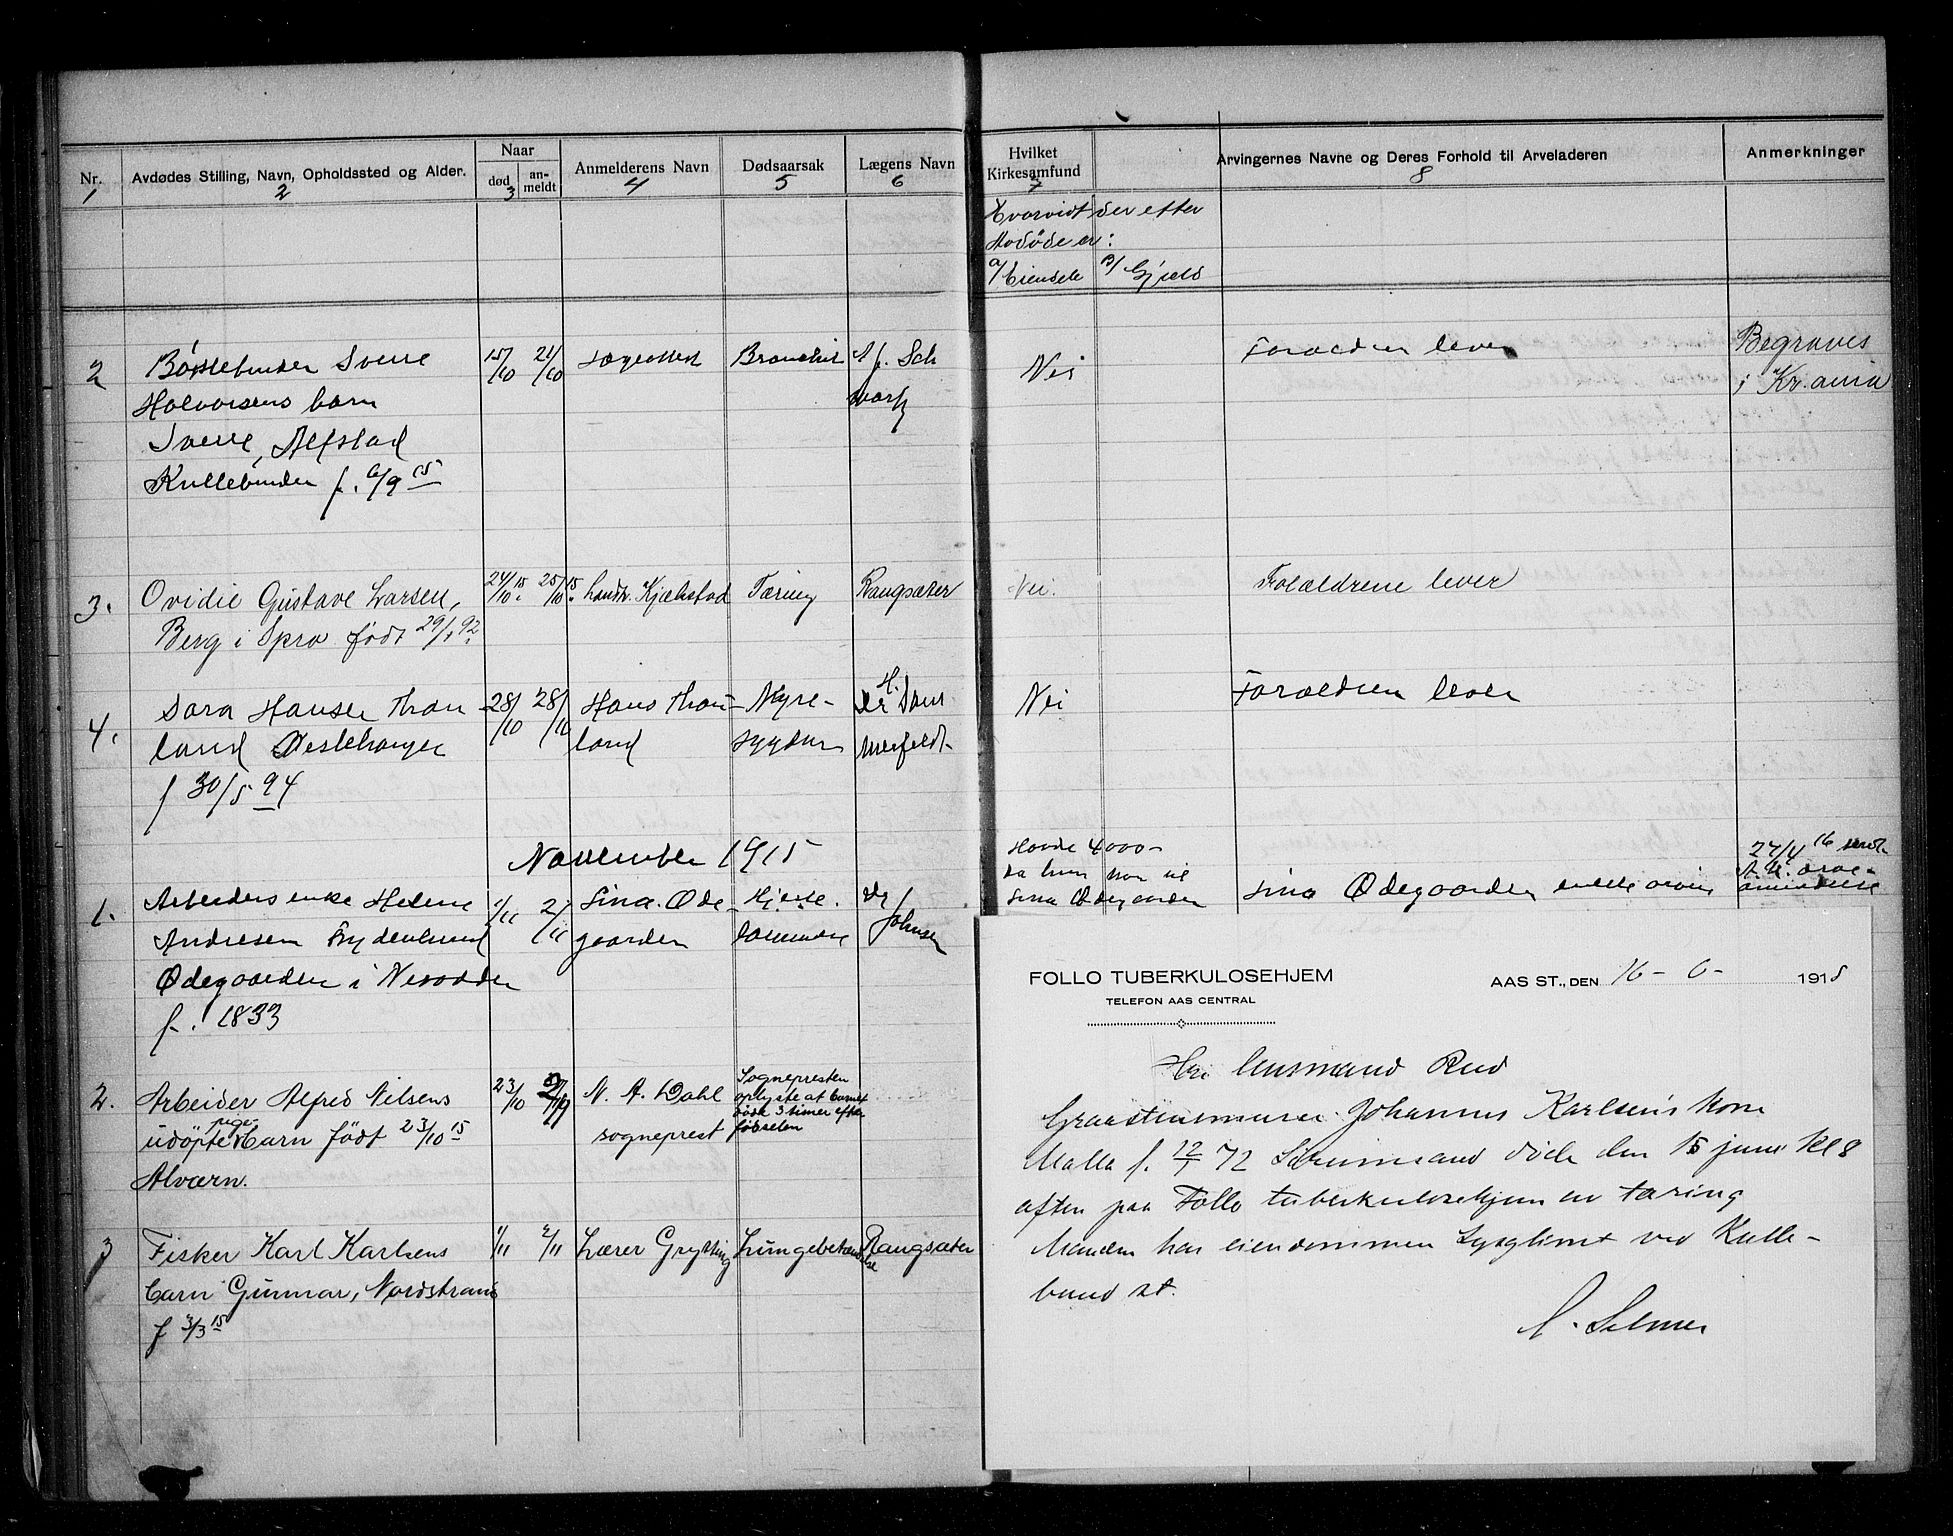 Nr.
1
Avdødes Stilling, Navn, Opholdssted og Alder.
2
Naar
død
an-
meldt
3
Anmelderens Navn
4
Dødsaarsak
5
Lægens Navn
6
Hvilket
Kirkesamfund
7
Arvingernes Navne og Deres Forhold til Arveladeren
8
Anmerkninger
Hvorvidt der efter
Avdøde er:
a/ Eiendele b/ Gjæld
2
Børstebinder Sverre
Halvorsens barn
Sverre, Alfstad
Kullebunden f. 6/9 15
15/10
21/10
Bronchit
Schwartz
Nei
Forældren lever
Begraves
i Kr.ania
3.
Ovidie Gustave Larsen,
Berg i Spro født 29/1 92
24/10 15
25/10 15
Landh. Kjælstad
Tæring
Rangsæter
Nei.
Forældrene lever
4.
Sara Hansen Thon
land Oestehangen
f 30/5 94
28/10
28/10
Hans Thon-
land
Nyre-
sygdom
Dr H.
Nei
Forældren lever
November 1915
1.
Arbeiders enke Helene
Andresen Frydenlund
Ødegaarden i Nesodden
f. 1833
1/11
2/11
Lina Øde-
gaarden
Hjerte-
lammelse
Dr
Johnsen
Havde 4000-
da hun var til
Lina Ødegaarden
Lina Ødegaarden eneste arving
27/4 16 sendt
2.
Arbeider Alfred Nilsens
udöpte pige Barn født 23/10 15
Alværn.
23/10
N. A. Dahl
sogneprest
Sognepresten
oplyste at barnet
døde 3 timer efter
fødselen
3
Fisker Karl Karlsens
barn Gunnar, Nordstrand
f 3/3 15
1/11
2/11
Lærer Grytting
Lungebetændelse
Rangsæter
FOLLO TUBERKULOSEHJEM
TELEFON AAS CENTRAL
AAS ST., DEN 16-6- 1918
Hr. Lensmand Rud
Graastensmurer Johannes Karlsen's kone
Malla f. 12/1 72 døde den 15 juni kl 8
aften paa Follo tuberkulosehjem av tæring
Manden har eiendommen Lysglimt ved Kulle-
bund st.
Selmer